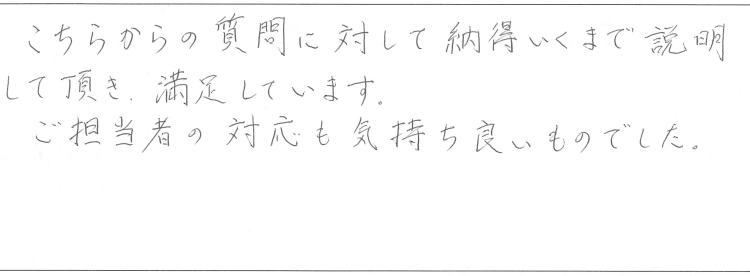 こちらからの質問に対して納得いくまで説明
して頂き、満足しています。
ご担当者の対応も気持ち良いものでした。